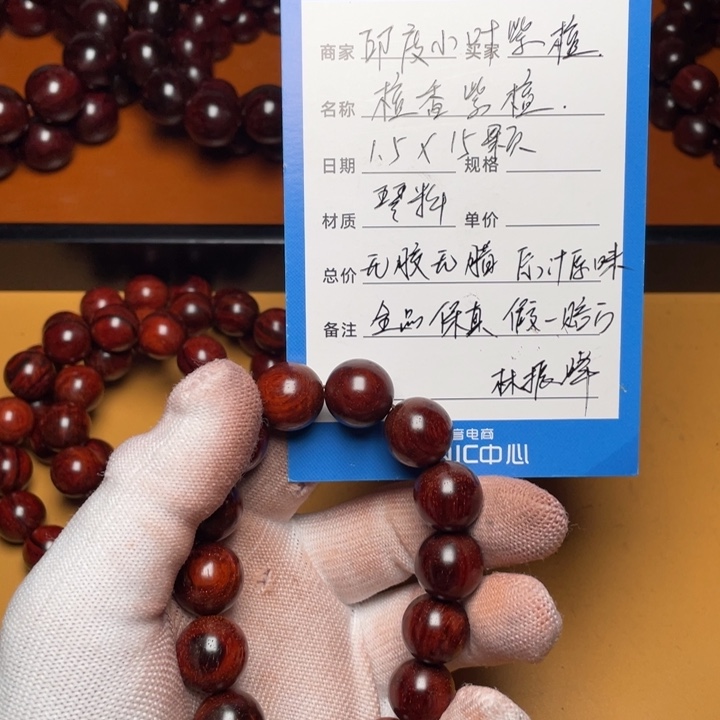 商家 印度小叶 买家 紫檀.
名称 檀香紫檀.
日期 1.5 X 15颗 规格
材质 琴料 单价
总价 无胶无腊 原汁原味
备注 全品保真 假一赔
林振峰
音电商
IC中心